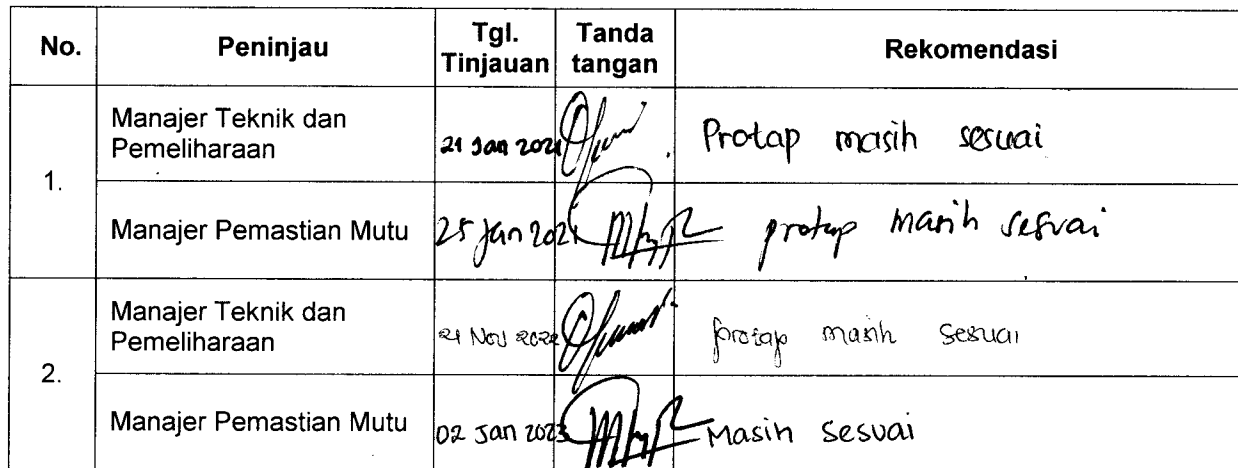 No. Peninjau Tgl. Tinjauan Tanda tangan Rekomendasi
1.
Manajer Teknik dan Pemeliharaan 21 Jan 2021 Protap masih sesuai
Manajer Pemastian Mutu 25 Jan 2021 protap masih sesuai
2.
Manajer Teknik dan Pemeliharaan 21 Nov 2022 protap masih sesuai
Manajer Pemastian Mutu 02 Jan 2023 Masih sesuai